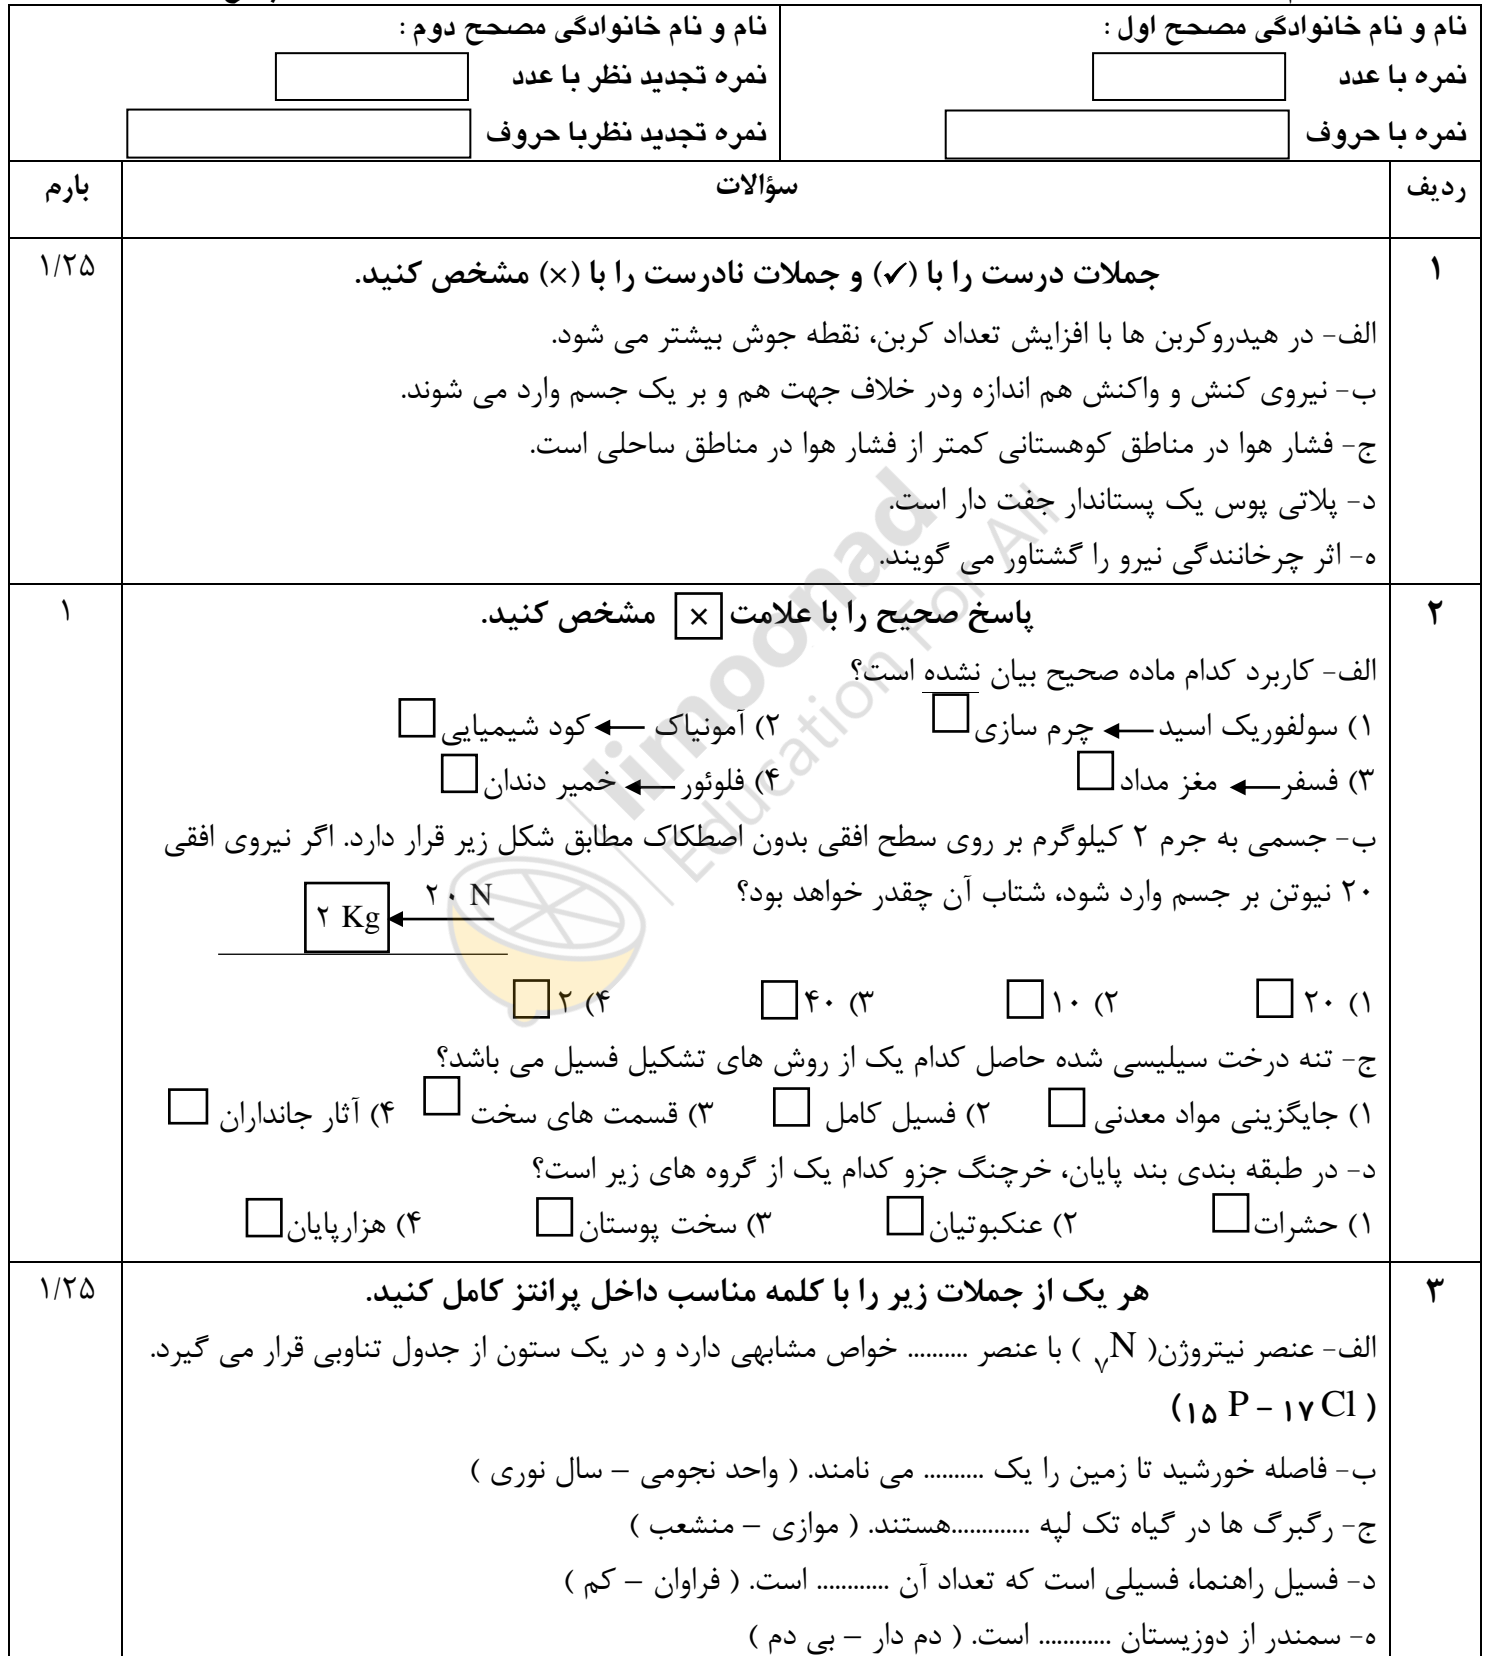 نام و نام خانوادگی مصحح اول :
نمره با عدد
نمره با حروف
نام و نام خانوادگی مصحح دوم :
نمره تجدید نظر با عدد
نمره تجدید نظربا حروف
ردیف سؤالات بارم
۱ جملات درست را با (✓) و جملات نادرست را با (×) مشخص کنید. ۱/۲۵
الف- در هیدروکربن ها با افزایش تعداد کربن، نقطه جوش بیشتر می شود.
ب- نیروی کنش و واکنش هم اندازه ودر خلاف جهت هم و بر یک جسم وارد می شوند.
ج- فشار هوا در مناطق کوهستانی کمتر از فشار هوا در مناطق ساحلی است.
د- پلاتی پوس یک پستاندار جفت دار است.
ه- اثر چرخانندگی نیرو را گشتاور می گویند.
۲ پاسخ صحیح را با علامت × مشخص کنید. ۱
الف- کاربرد کدام ماده صحیح بیان نشده است؟
۱) سولفوریک اسید ← چرم سازی □ ۲) آمونیاک ← کود شیمیایی □
۳) فسفر ← مغز مداد □ ۴) فلوئور ← خمیر دندان □
ب- جسمی به جرم ۲ کیلوگرم بر روی سطح افقی بدون اصطکاک مطابق شکل زیر قرار دارد. اگر نیروی افقی
۲۰ نیوتن بر جسم وارد شود، شتاب آن چقدر خواهد بود؟
۲۰ N
۲ Kg
۱) ۲۰ □ ۲) ۱۰ □ ۳) ۴۰ □ ۴) ۲ □
ج- تنه درخت سیلیسی شده حاصل کدام یک از روش های تشکیل فسیل می باشد؟
۱) جایگزینی مواد معدنی □ ۲) فسیل کامل □ ۳) قسمت های سخت □ ۴) آثار جانداران □
د- در طبقه بندی بند پایان، خرچنگ جزو کدام یک از گروه های زیر است؟
۱) حشرات □ ۲) عنکبوتیان □ ۳) سخت پوستان □ ۴) هزارپایان □
۳ هر یک از جملات زیر را با کلمه مناسب داخل پرانتز کامل کنید. ۱/۲۵
الف- عنصر نیتروژن( ₇N ) با عنصر .......... خواص مشابهی دارد و در یک ستون از جدول تناوبی قرار می گیرد.
( ۱۷ Cl – ۱۵ P)
ب- فاصله خورشید تا زمین را یک .......... می نامند. ( واحد نجومی – سال نوری )
ج- رگبرگ ها در گیاه تک لپه .............هستند. ( موازی – منشعب )
د- فسیل راهنما، فسیلی است که تعداد آن ............ است. ( فراوان – کم )
ه- سمندر از دوزیستان ............ است. ( دم دار – بی دم )
limoonad
Education For All